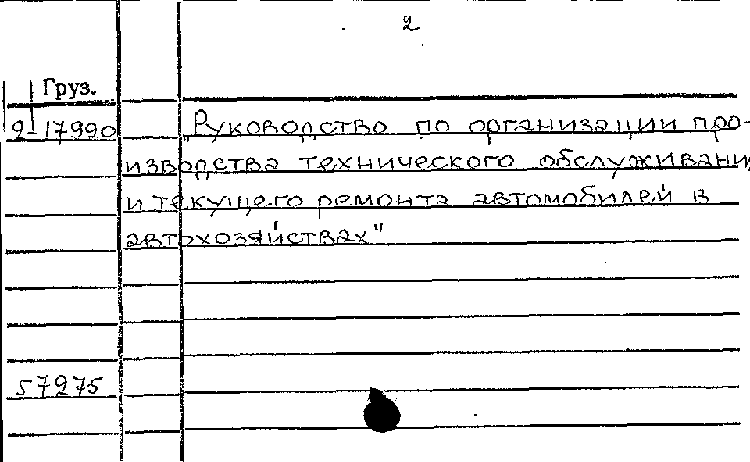 2
Груз.
2-17990 „Руководство по организации про-
изводства технического обслуживани
и текущего ремонта автомобилей в
автохозяйствах"
57275